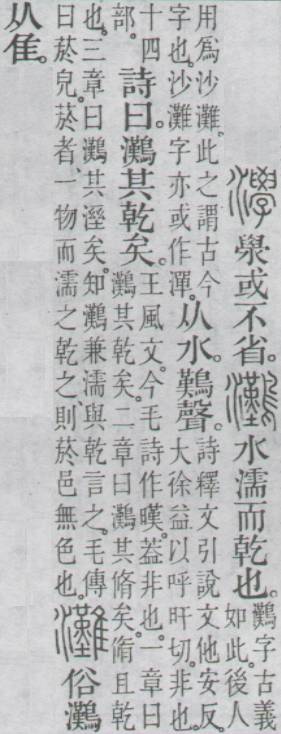 㶅澩或不省。𤅩水濡而乾也。𤅩字古義如此。後人
用爲沙灘。此之謂古今字也。沙灘字亦或作潬。从水。𪄿聲。詩釋文引說文他安反。大徐益以呼旰切。非也。
十四部。詩曰。𤅩其乾矣。王風文。今毛詩作暵。葢非也。一章曰𤅩其乾矣。二章曰𤅩其脩矣。脩且乾
也。三章曰𤅩其溼矣。知𤅩兼濡與乾言之。毛傳曰菸皃。菸者、一物而濡之乾之、則菸邑無色也。灘俗𤅩
从隹。